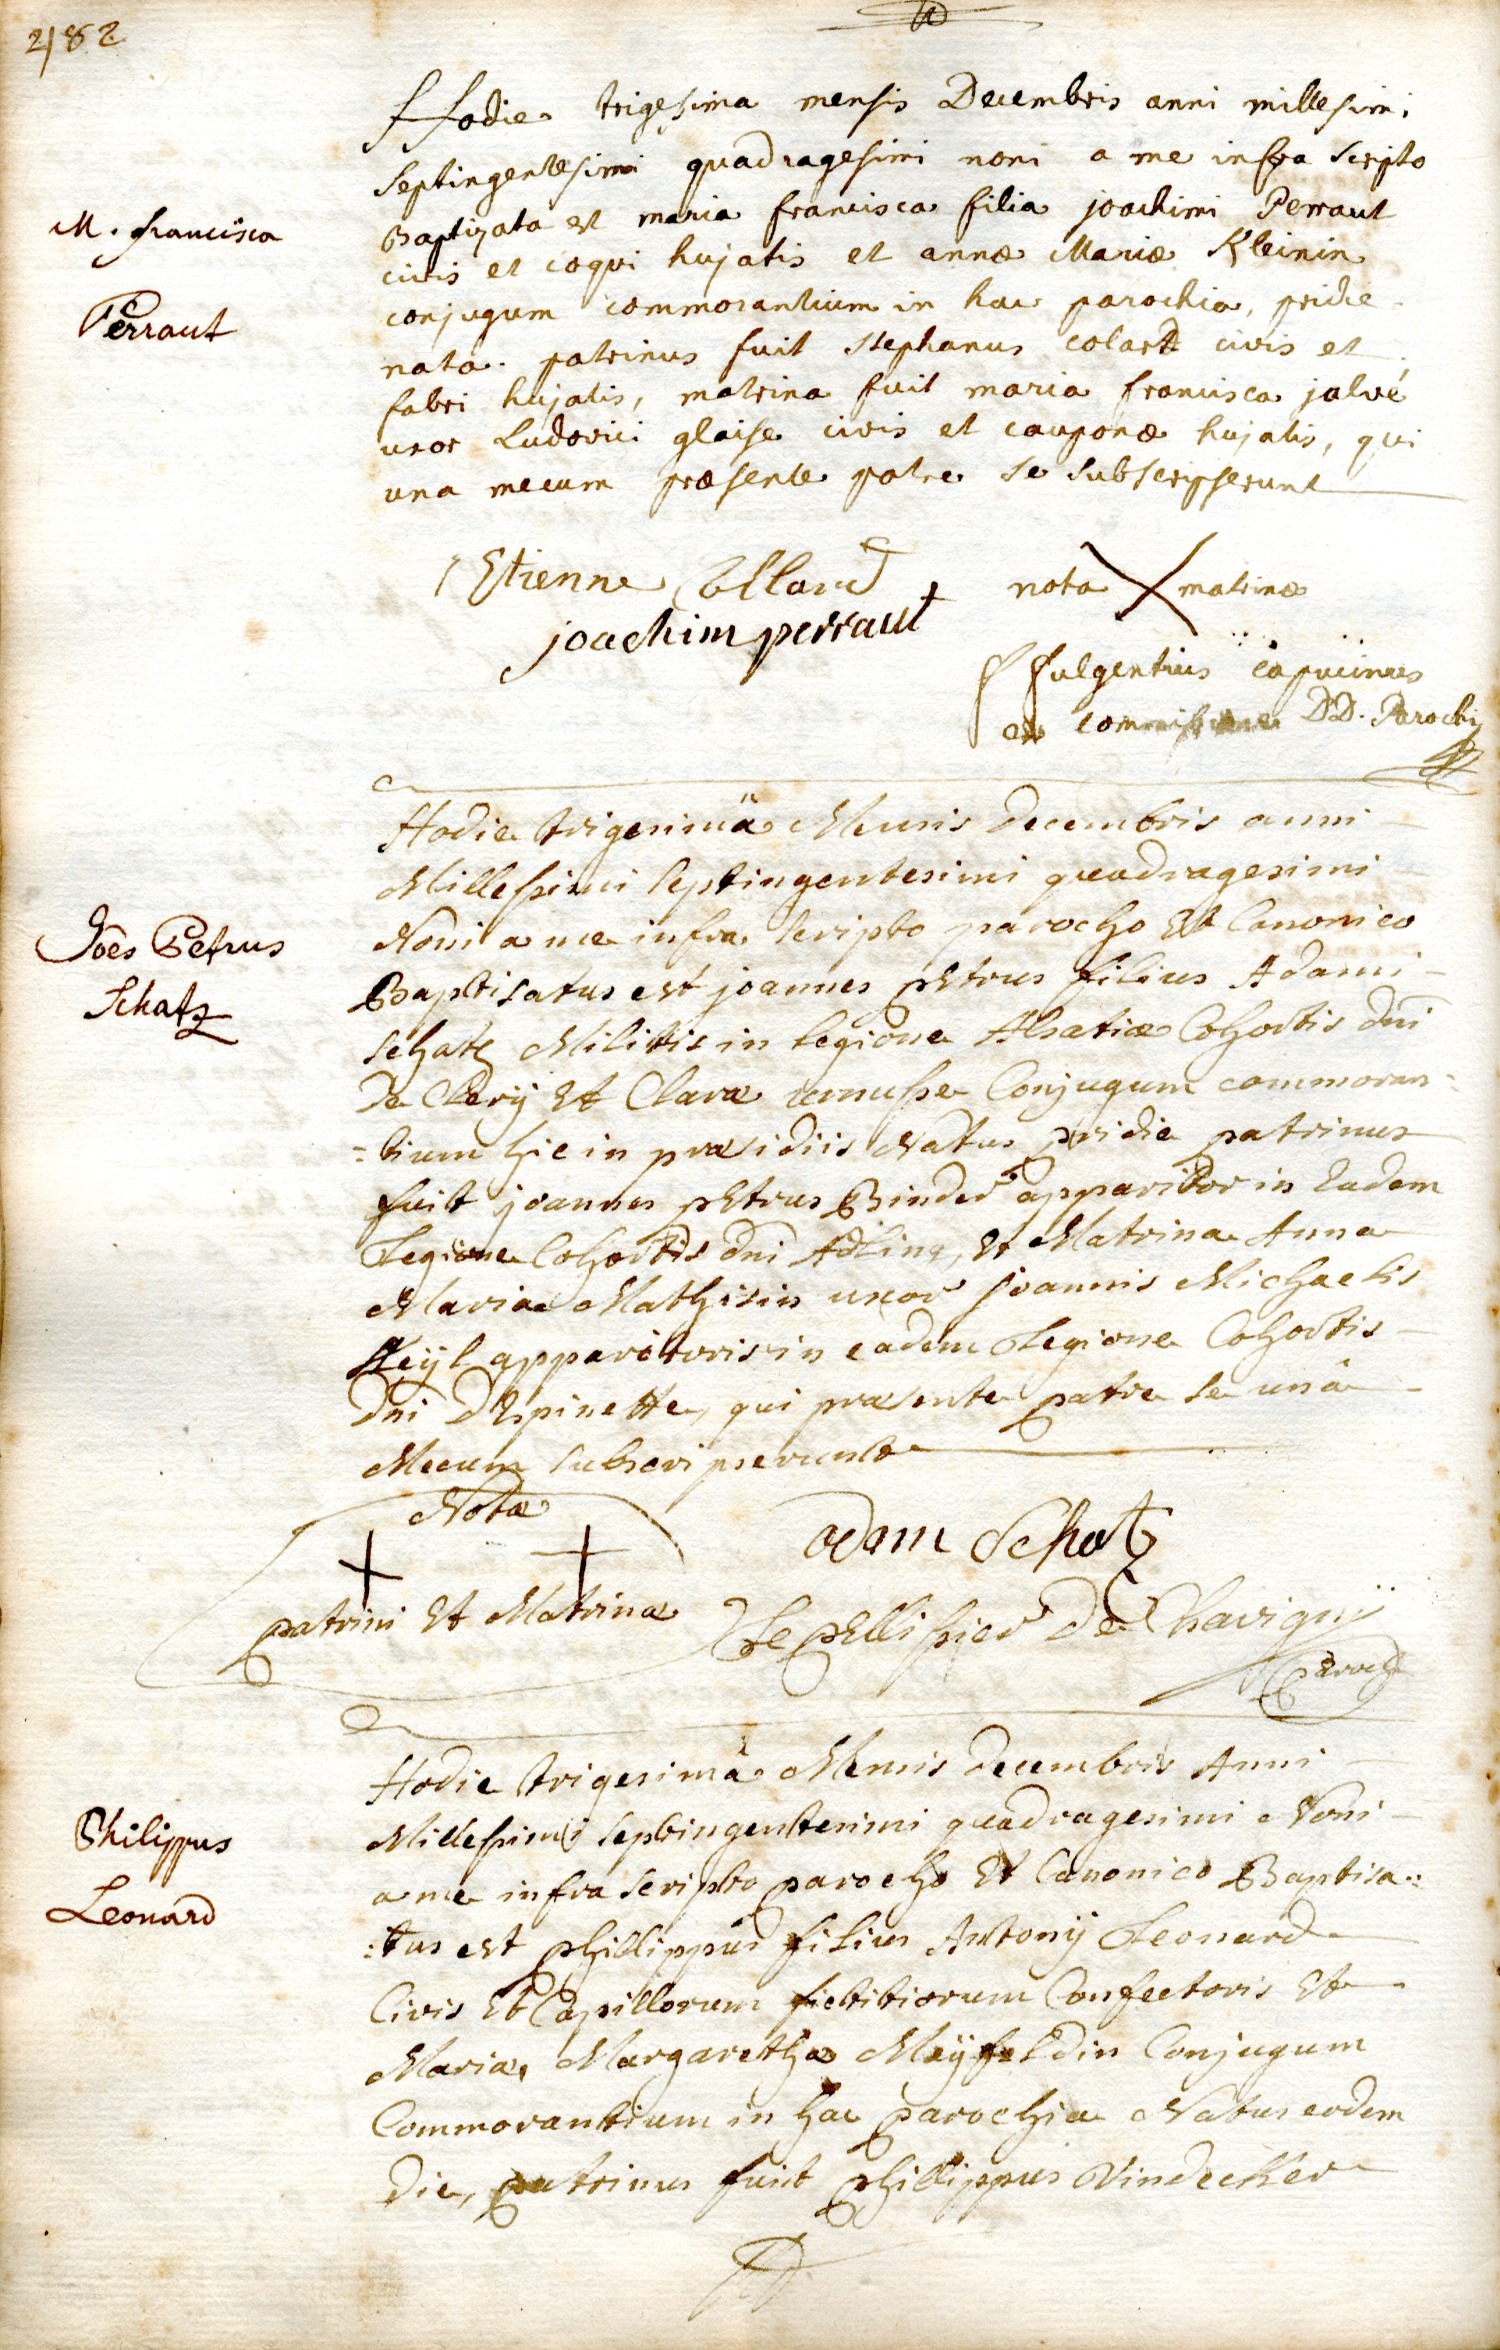 2182
Hodie trigesima mensis Decembris anni millesimi
septingentesimi quadragesimi noni a me infra scripto
M. francisca
Baptizata est maria francisca filia joachimi Perraut
civis et coqui hujatis et annæ Mariæ Kleinin
Perraut
conjugum commorantium in hac parochia, pridie
nata. patrinus fuit stephanus colard civis et
fabri hujatis, matrina fuit maria francisca jalvé
uxor Ludovici glaise civis et cauponæ hujatis, qui
una mecum præsente patre se subscripserunt
Etienne Collard
nota X matrinæ
joachim perraut
f fulgentius capucinus
ex commissione DD. Parochi
Hodie trigesimâ Mensis decembris anni
Millesimi septingentesimi quadragesimi
Joês Petrus
Noni a me infra scripto parocho Et Canonico
Schatz
Baptisatus est joannes pEtrus filius Adami
schatz Militis in legione Alsatiæ Cohortis dni
De Clery Et Claræ Conjugum commoran=
=tium hic in præsidiis Natus pridie patrinus
fuit joannes pEtrus Binder apparitor in Eadem
Legione Cohortis dni Adling, Et Matrina Anna
Maria Mathisin uxor joannis Michaelis
Keÿl apparitoris in eadem Legione Cohortis
dni DEspinette, qui præsente patre se unâ
Mecum subscripserunt
Nota
+ +
adam Schatz
patrini Et Matrinæ
Le pEllissier De Chavigny
paroch
Hodie trigesimâ Mensis decembris Anni
Philippus
Millesimi septingentesimi quadragesimi Noni
a me infra scripto parocho Et Canonico Baptisa=
Leonard
=tus est phillippus filius Antonÿ Leonard
Civis Et Capillorum fictitiorum Confectoris Et
Mariæ Margarethæ Meÿfeldin Conjugum
Commorantium in hac parochia Natus eodem
die, patrinus fuit phillippus Vindecker